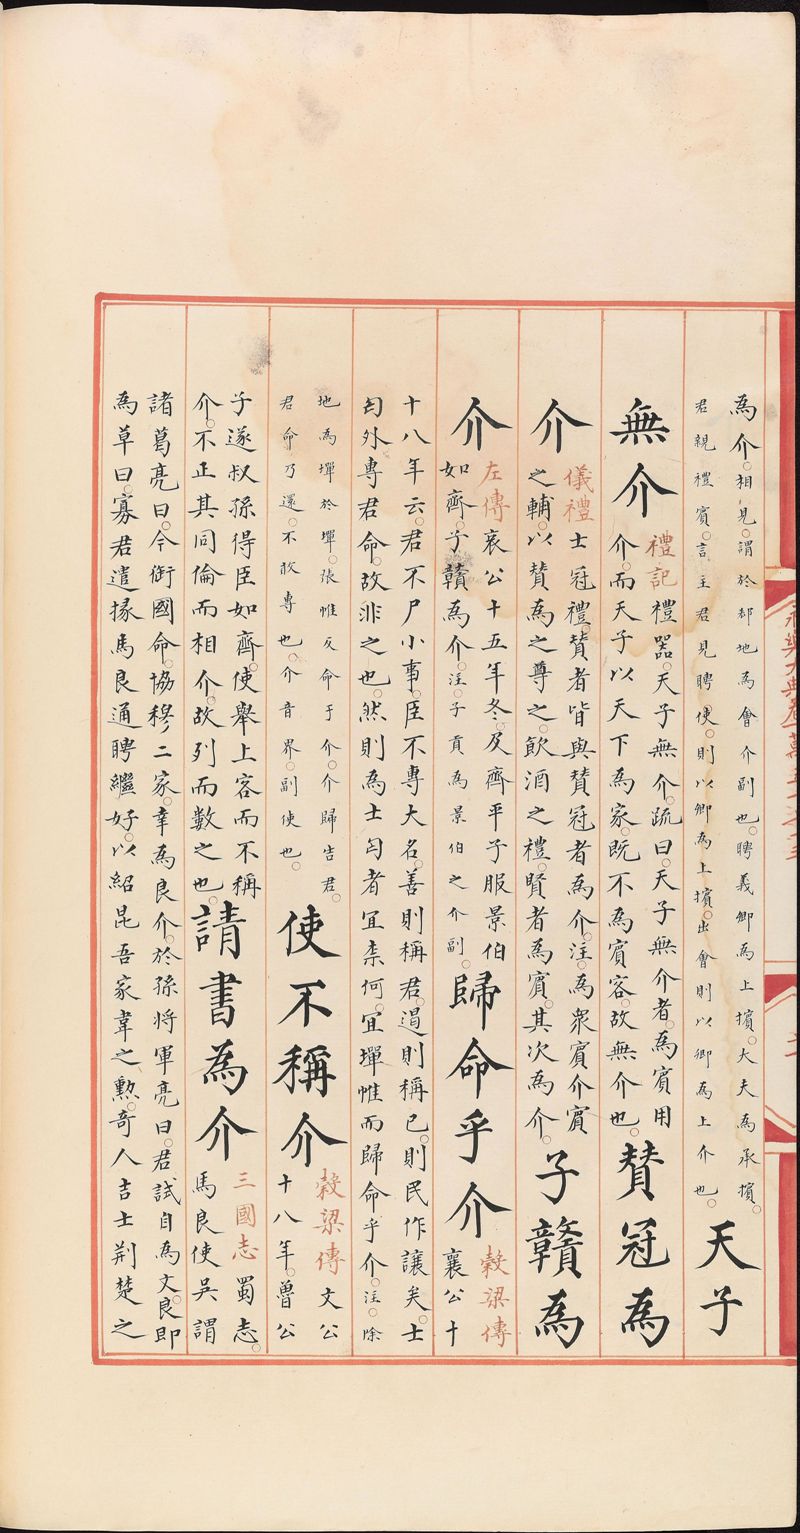 永樂大典卷
為介。相見。謂於郄地為會介副也。聘義卿為上擯。大夫為承擯。
君親禮賓。言主君見聘使。則以卿為上擯。出會則以卿為上介也。
天子
無介
禮記禮器。天子無介。疏曰。天子無介者。為賓用
介。而天子以天下為家。既不為賓客。故無介也。
贊冠為
介
儀禮士冠禮。贊者皆與贊冠者為介。注。為衆賓介賓
之輔。以贊為之尊之。飲酒之禮。賢者為賓。其次為介。
子贛為
介
左傳哀公十五年冬。及齊平子服景伯
如齊。子贛為介。注。子貢為景伯之介副。
歸命乎介
穀梁傳
襄公十
十八年云。君不尸小事。臣不專大名。善則稱君。過則稱己。則民作讓矣。士
匄外專君命。故非之也。然則為士匄者宜柰何。宜墠帷而歸命乎介。注。除
地為墠於墠。張帷反命于介。介歸告君。
君命乃還。不敢專也。介音界。副使也。
使不稱介
穀梁傳文公
十八年。魯公
子遂叔孫得臣如齊。使舉上客而不稱
介。不正其同倫而相介。故列而數之也。
請書為介
三國志蜀志。
馬良使吳謂
諸葛亮曰。今銜國命。協穆二家。幸為良介。於孫將軍亮曰。君試自為文。良即
為草曰。寡君遣掾馬良通聘繼好。以紹昆吾豕韋之勳。奇人吉士荊楚之